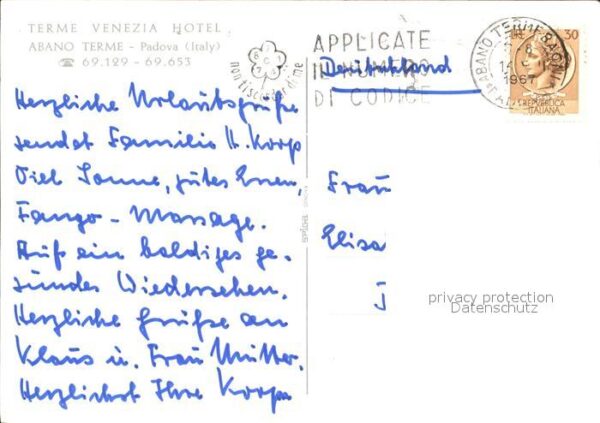 TERME VENEZIA HOTEL
ABANO TERME - Padova (Italy)
☎ 69.129 - 69.653
non ti scordar di me
APPLICATE
IL NUMERO
DI CODICE
ABANO TERME
1967
30
REPVBBLICA
ITALIANA
Deutschland
Herzliche Urlaubsgrüße
sendet Familie H. Korp
Viel Sonne, gutes Essen,
Fango-Massage.
Auf ein baldiges ge-
sundes Wiedersehen.
Herzliche Grüße an
Klaus u. Frau Mutter.
Herzlichst Ihre Korps
Frau
Elisa
J
privacy protection
Datenschutz